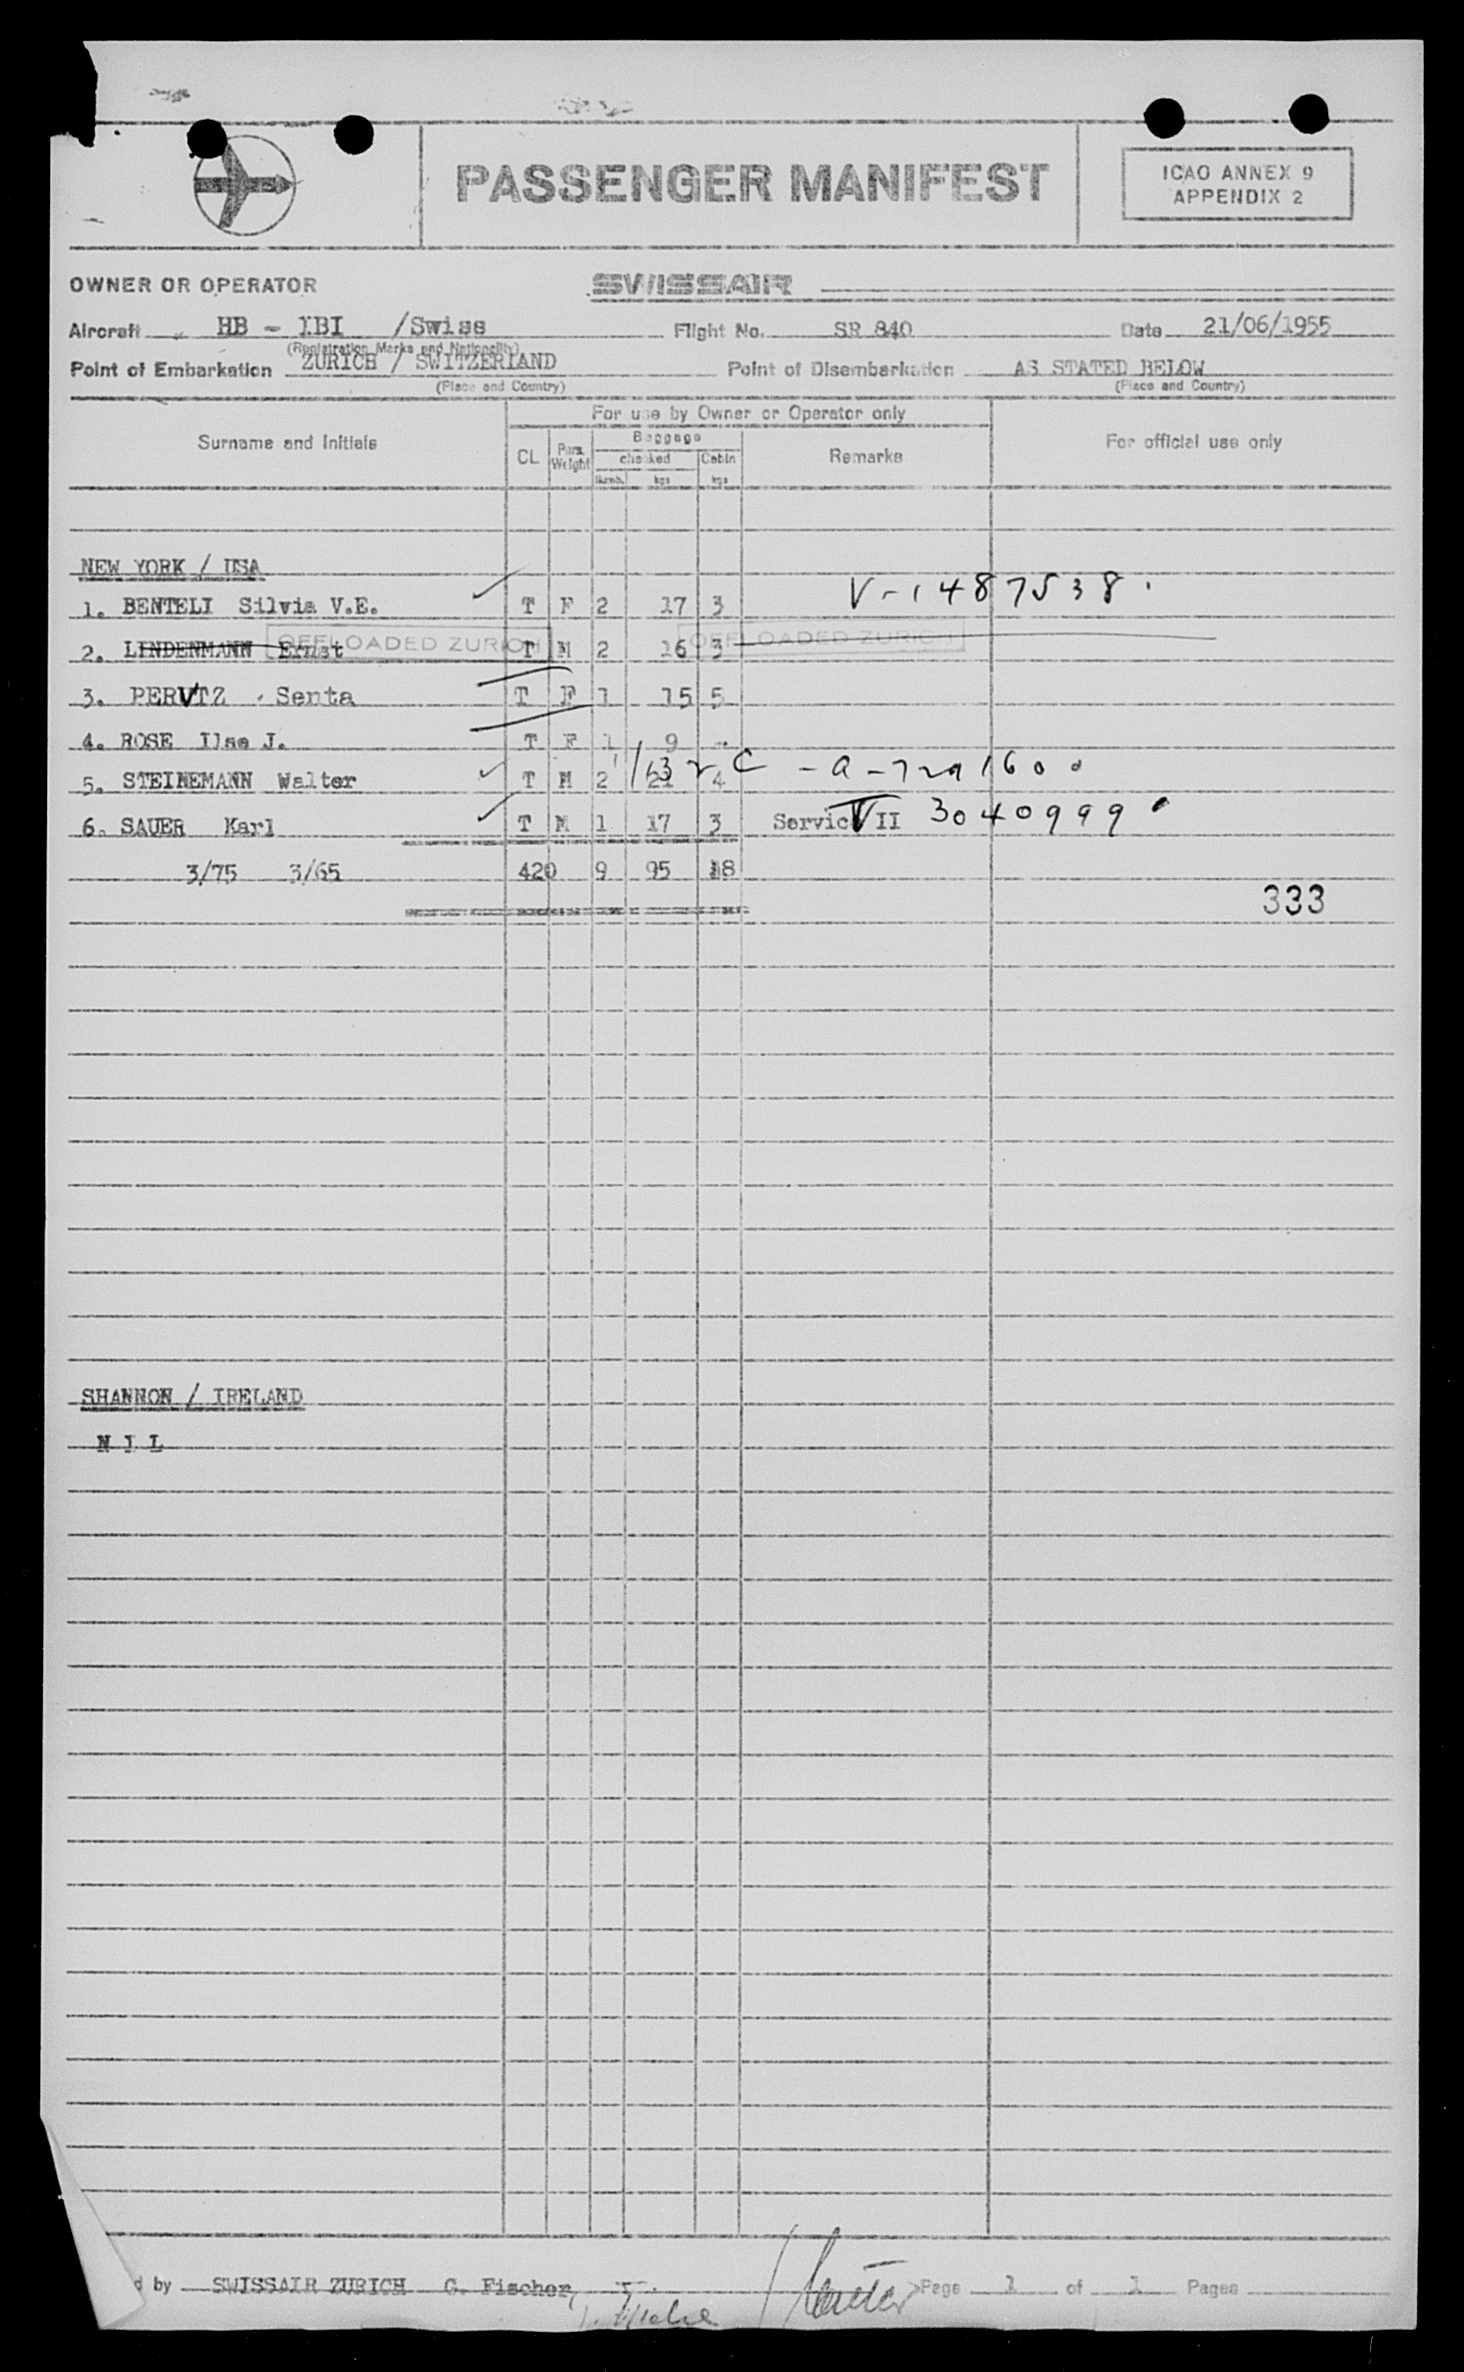 PASSENGER MANIFEST
ICAO ANNEX 9
APPENDIX 2
OWNER OR OPERATOR SWISSAIR
Aircraft HB - IBI /Swiss Flight No. SR 840 Date 21/06/1955
(Registration Marks and Nationality)
Point of Embarkation ZURICH / SWITZERLAND Point of Disembarkation AS STATED BELOW
(Place and Country) (Place and Country)
For use by Owner or Operator only
Surname and Initials CL Pass. Weight Baggage Remarks For official use only
checked Cabin
Numb. kgs kgs
NEW YORK / USA
1. BENTELI Silvia V.E. T F 2 17 3 V-1487538
2. LINDENMANN Ernst OFFLOADED ZURICH T M 2 16 3 OFFLOADED ZURICH
3. PERUTZ Senta T F 1 15 5
4. ROSE Ilse J. T F 1 9 -
5. STEINEMANN Walter T M 2 21 4
6. SAUER Karl T M 1 17 3 Servic II V 3040999
3/75 3/65 420 9 95 18
333
SHANNON / IRELAND
N I L
d by SWISSAIR ZURICH G. Fischer Page 1 of 1 Pages